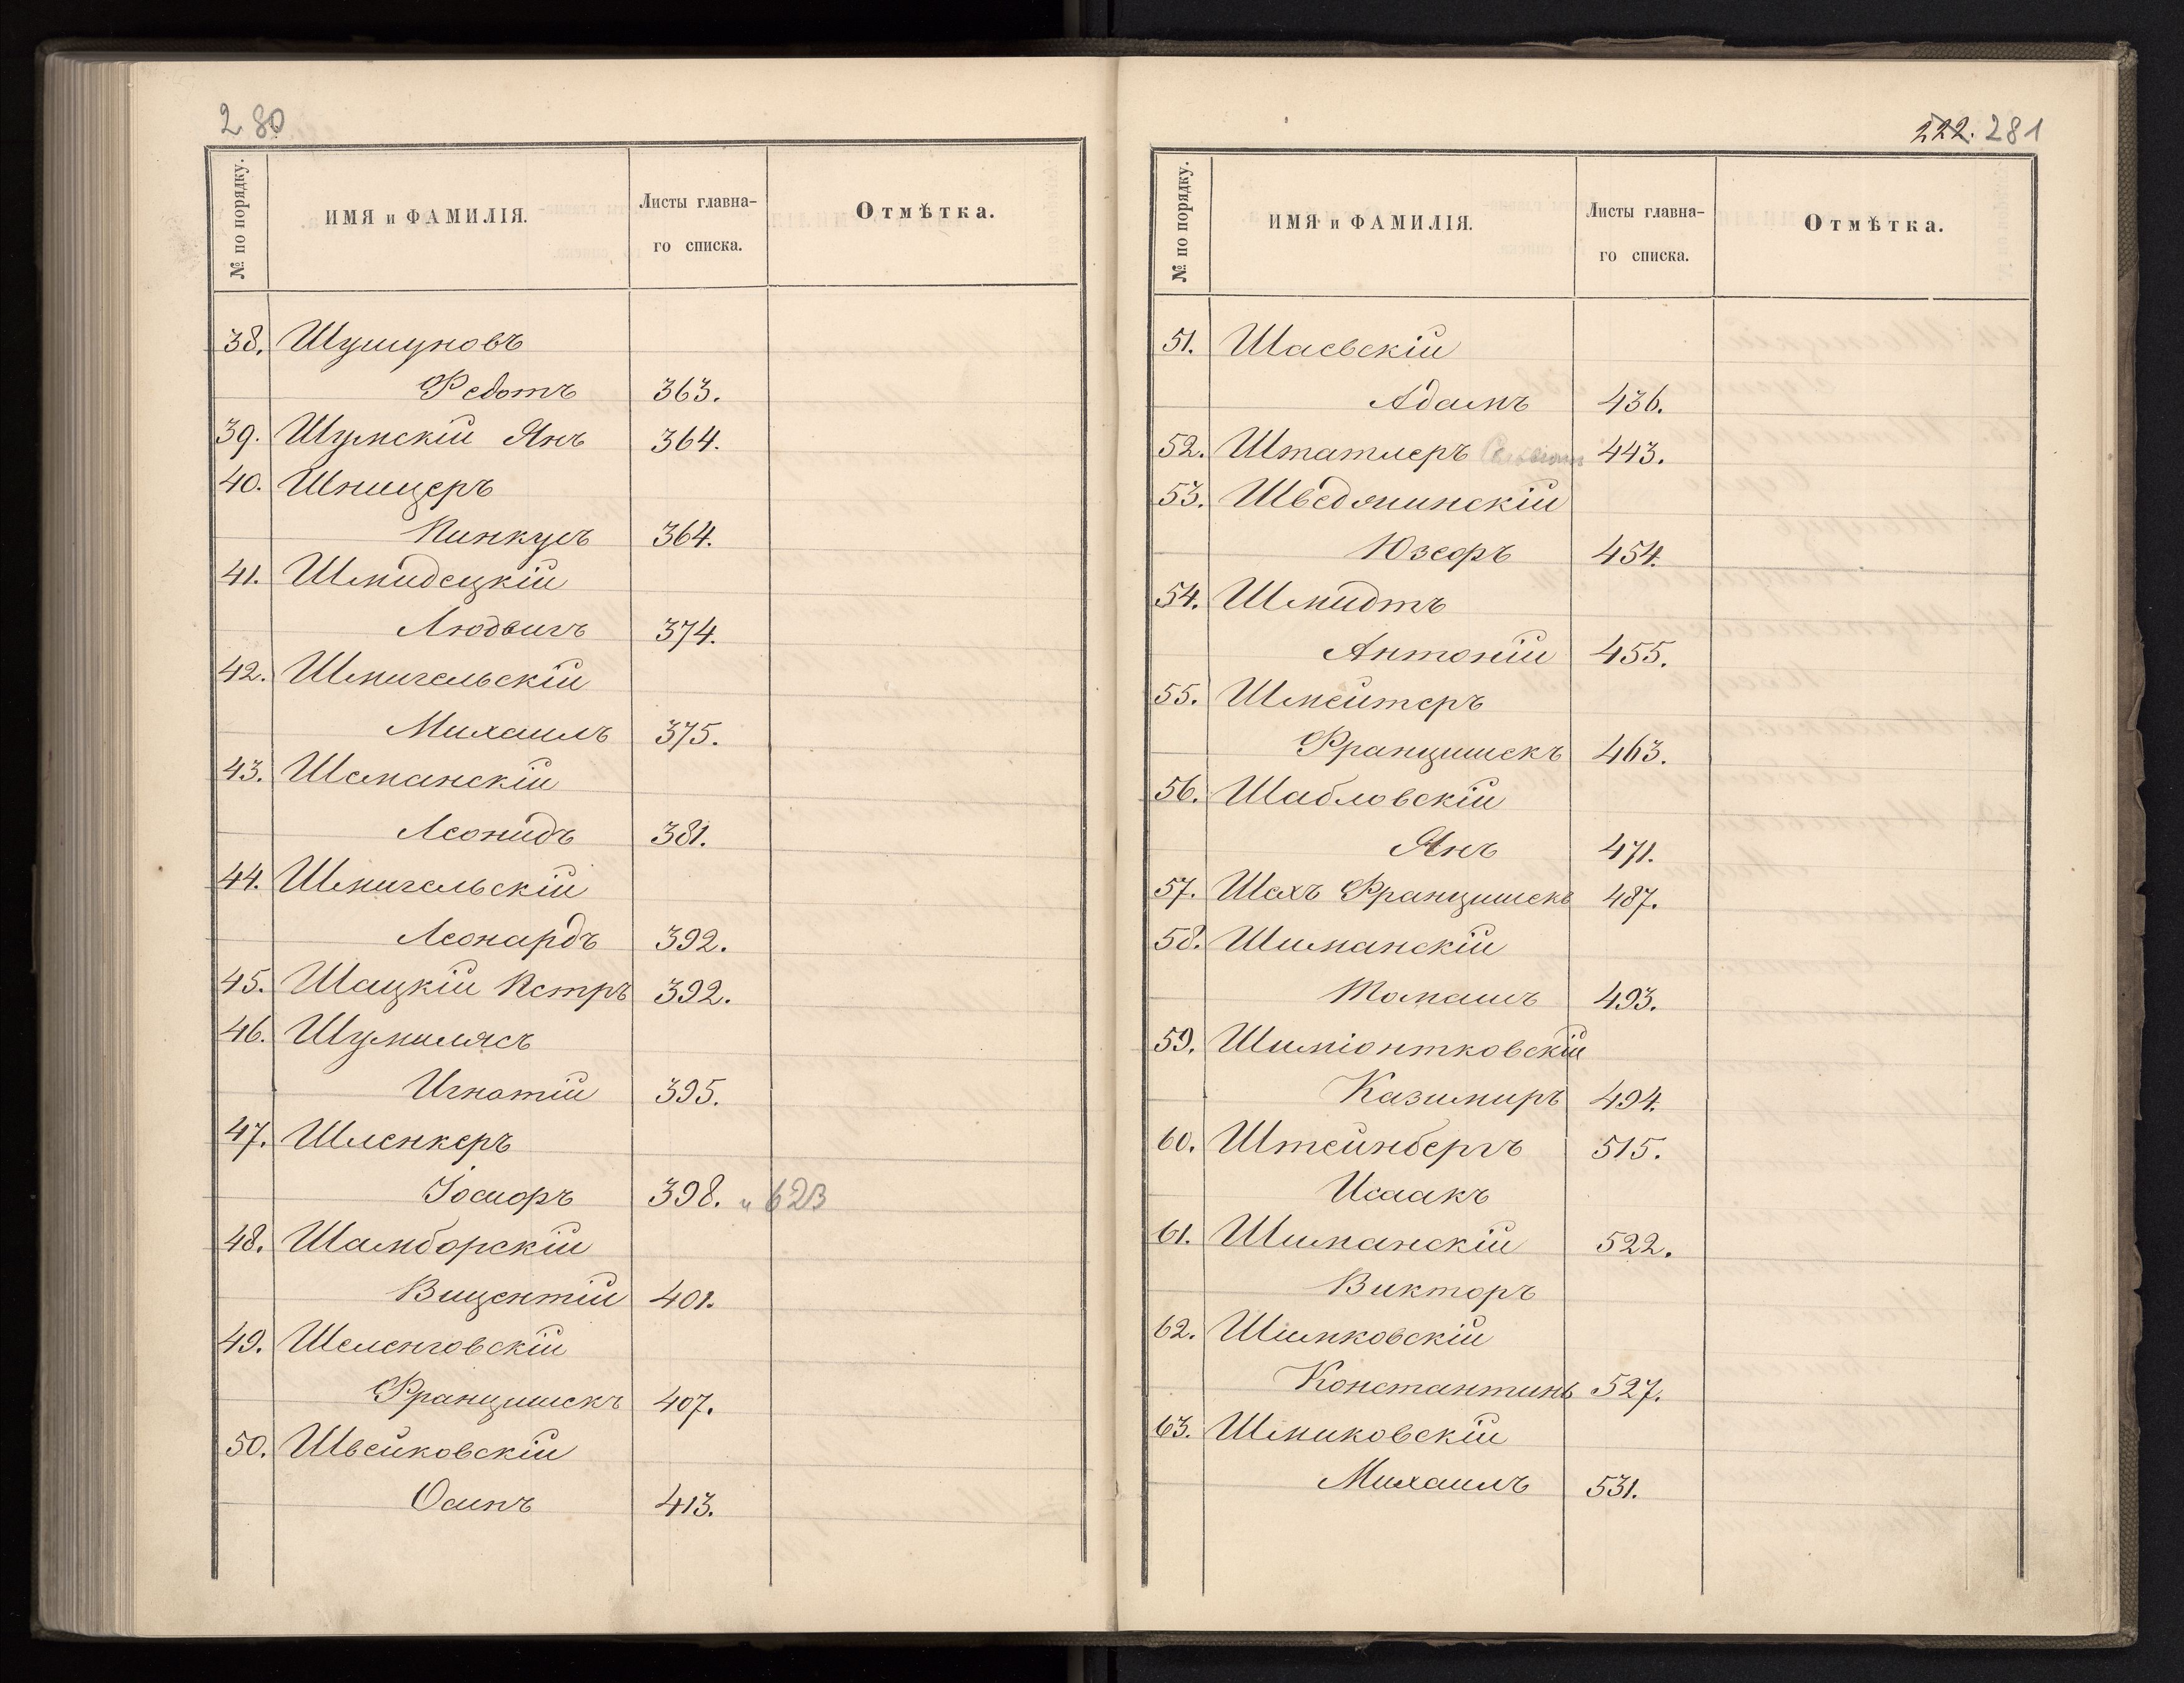 280
№ по порядку.
ИМЯ и ФАМИЛІЯ.
Листы главна-
го списка.
Отмѣтка.
38. Шушуновъ
Федотъ 363.
39. Шумскій Янъ 364.
40. Шницеръ
Пинкусъ 364.
41. Шмидецкій
Людвигъ 374.
42. Шмигельскій
Михаилъ 375.
43. Шеманскій
Леонидъ 381.
44. Шмигельскій
Леонардъ 392.
45. Шацкій Петръ 392.
46. Шумилясъ
Игнатій 395.
47. Шленкеръ
Іосифъ 398. и 623
48. Шамборскій
Вицентій 401.
49. Шеленговскій
Францишекъ 407.
50. Швейковскій
Осипъ 413.
222. 281
№ по порядку.
ИМЯ и ФАМИЛІЯ.
Листы главна-
го списка.
Отмѣтка.
51. Шаевскій
Адамъ 436.
52. Штатлеръ 443.
53. Шведзинскій
Юзефъ 454.
54. Шмидтъ
Антоній 455.
55. Шмейтеръ
Францишекъ 463.
56. Шабловскій
Янъ 471.
57. Шахъ Францишекъ 487.
58. Шиманскій
Томашъ 493.
59. Шиміонтковскій
Казимиръ 494.
60. Штейнбергъ 515.
Исаакъ
61. Шиманскій 522.
Викторъ
62. Шимковскій
Константинъ 527.
63. Шмиковскій
Михаилъ 531.